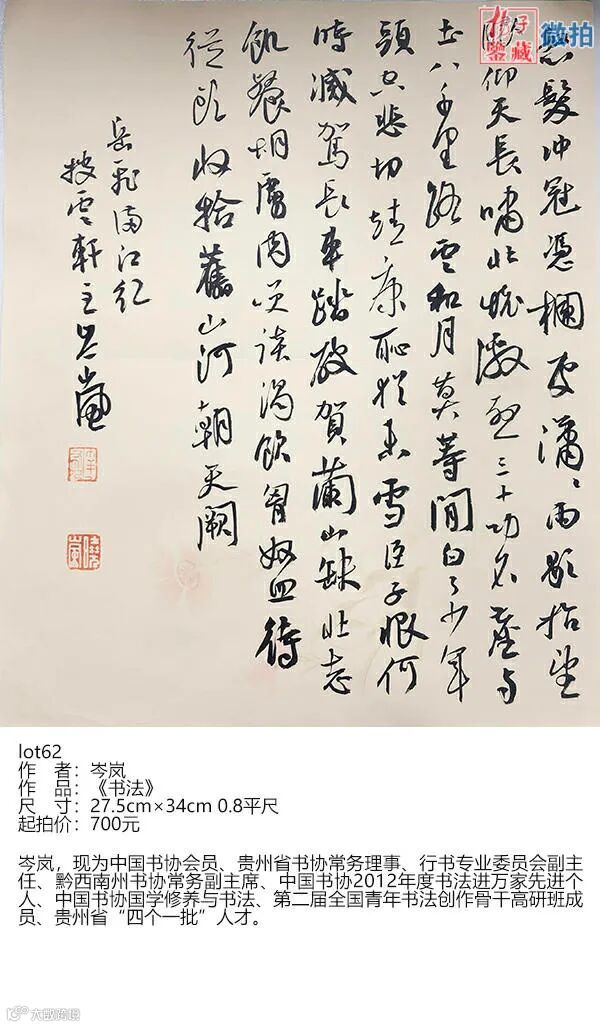 微拍
鑒藏
怒髮冲冠憑欄處瀟〻雨歇抬望
眼仰天長嘯壯懷激烈三十功名塵与
土八千里路雲和月莫等閒白了少年
頭空悲切靖康恥猶未雪臣子恨何
時滅駕長車踏破賀蘭山缺壯志
飢餐胡虜肉笑談渴飲匈奴血待
從頭收拾舊山河朝天闕
岳飛滿江紅
披雲軒主岑嵐
lot62
作 者：岑岚
作 品：《书法》
尺 寸：27.5cm×34cm 0.8平尺
起拍价：700元
岑岚，现为中国书协会员、贵州省书协常务理事、行书专业委员会副主
任、黔西南州书协常务副主席、中国书协2012年度书法进万家先进个
人、中国书协国学修养与书法、第二届全国青年书法创作骨干高研班成
员、贵州省“四个一批”人才。
大数跨境